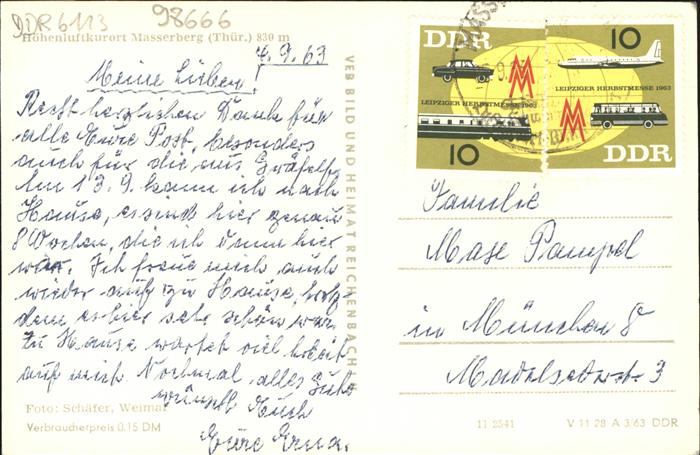 DDR 6113
98666
Höhenluftkurort Masserberg (Thür.) 830 m
9.63
Meine Lieben,
Recht herzlichen Dank für
alle Eure Post, besonders
auch für die aus Gräfelfg.
Am 13.9. kann ich nach
Hause, es sind hier genau
8 Wochen, die ich dann hier
war. Ich freue mich auch
wieder auf zu Hause, trotz
dem es hier sehr schön war.
Zu Hause wartet viel Arbeit
auf mich. Nochmal alles Gute
wünscht Euch
Eure Erna.
Foto: Schäfer, Weimar
Verbraucherpreis 0.15 DM
VEB BILD UND HEIMAT REICHENBACH
DDR
10
LEIPZIGER HERBSTMESSE 1963
LEIPZIGER HERBSTMESSE 1963
10
DDR
Familie
Pampel
in München 8
3
11 2541
V 11 28 A 3/63 DDR